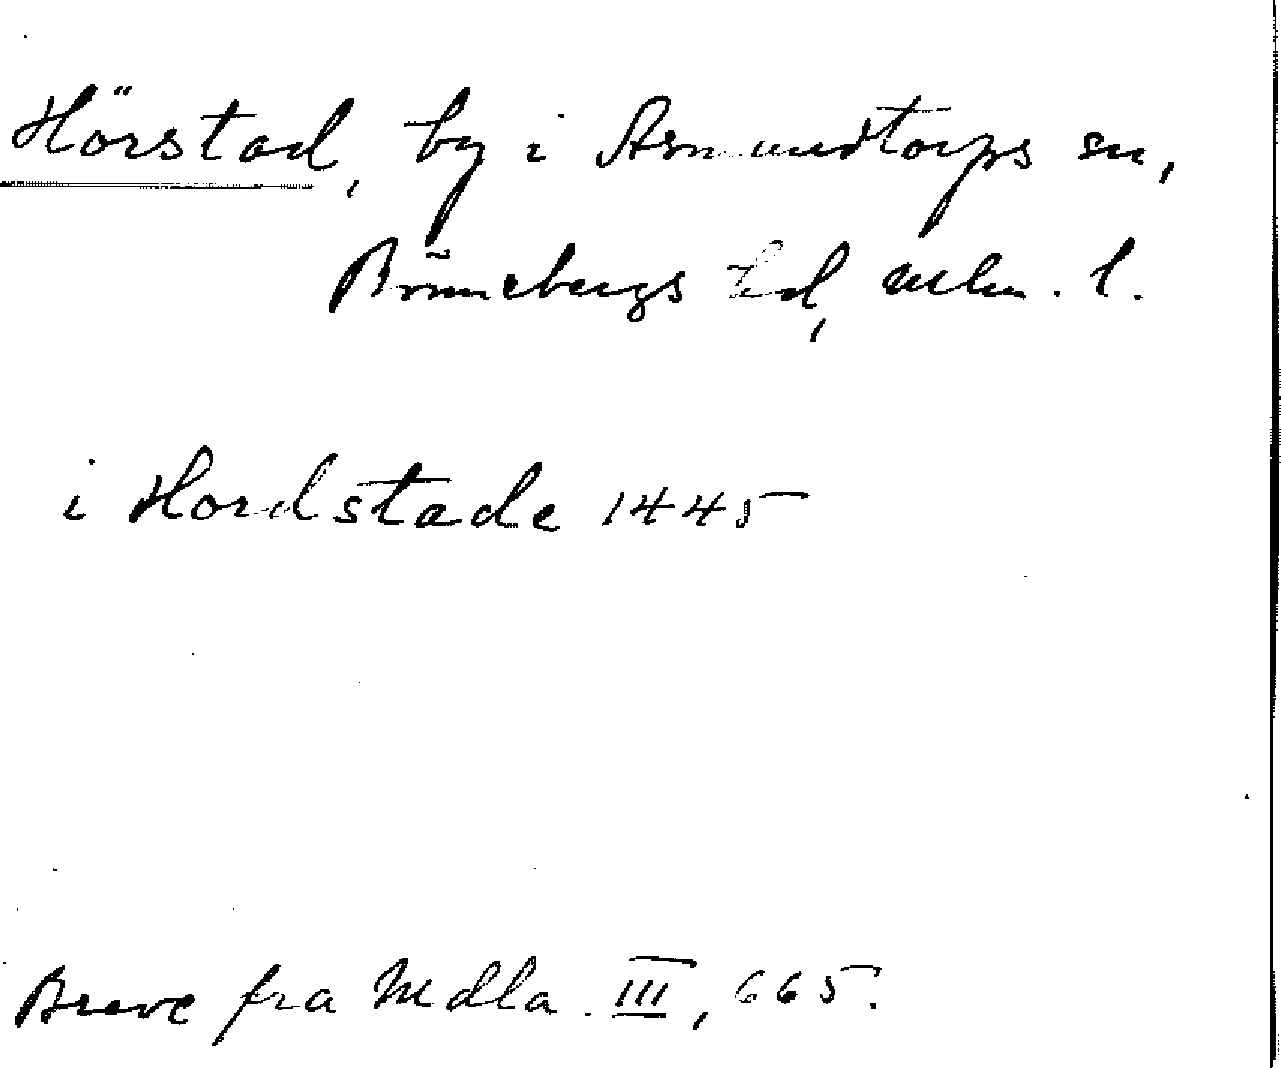 Hörstad, by i Asmundtorps sn,
Rönnebergs hd, Mlm. l.
i Hordstade 1445
Breve fra Mdla. III, 665.